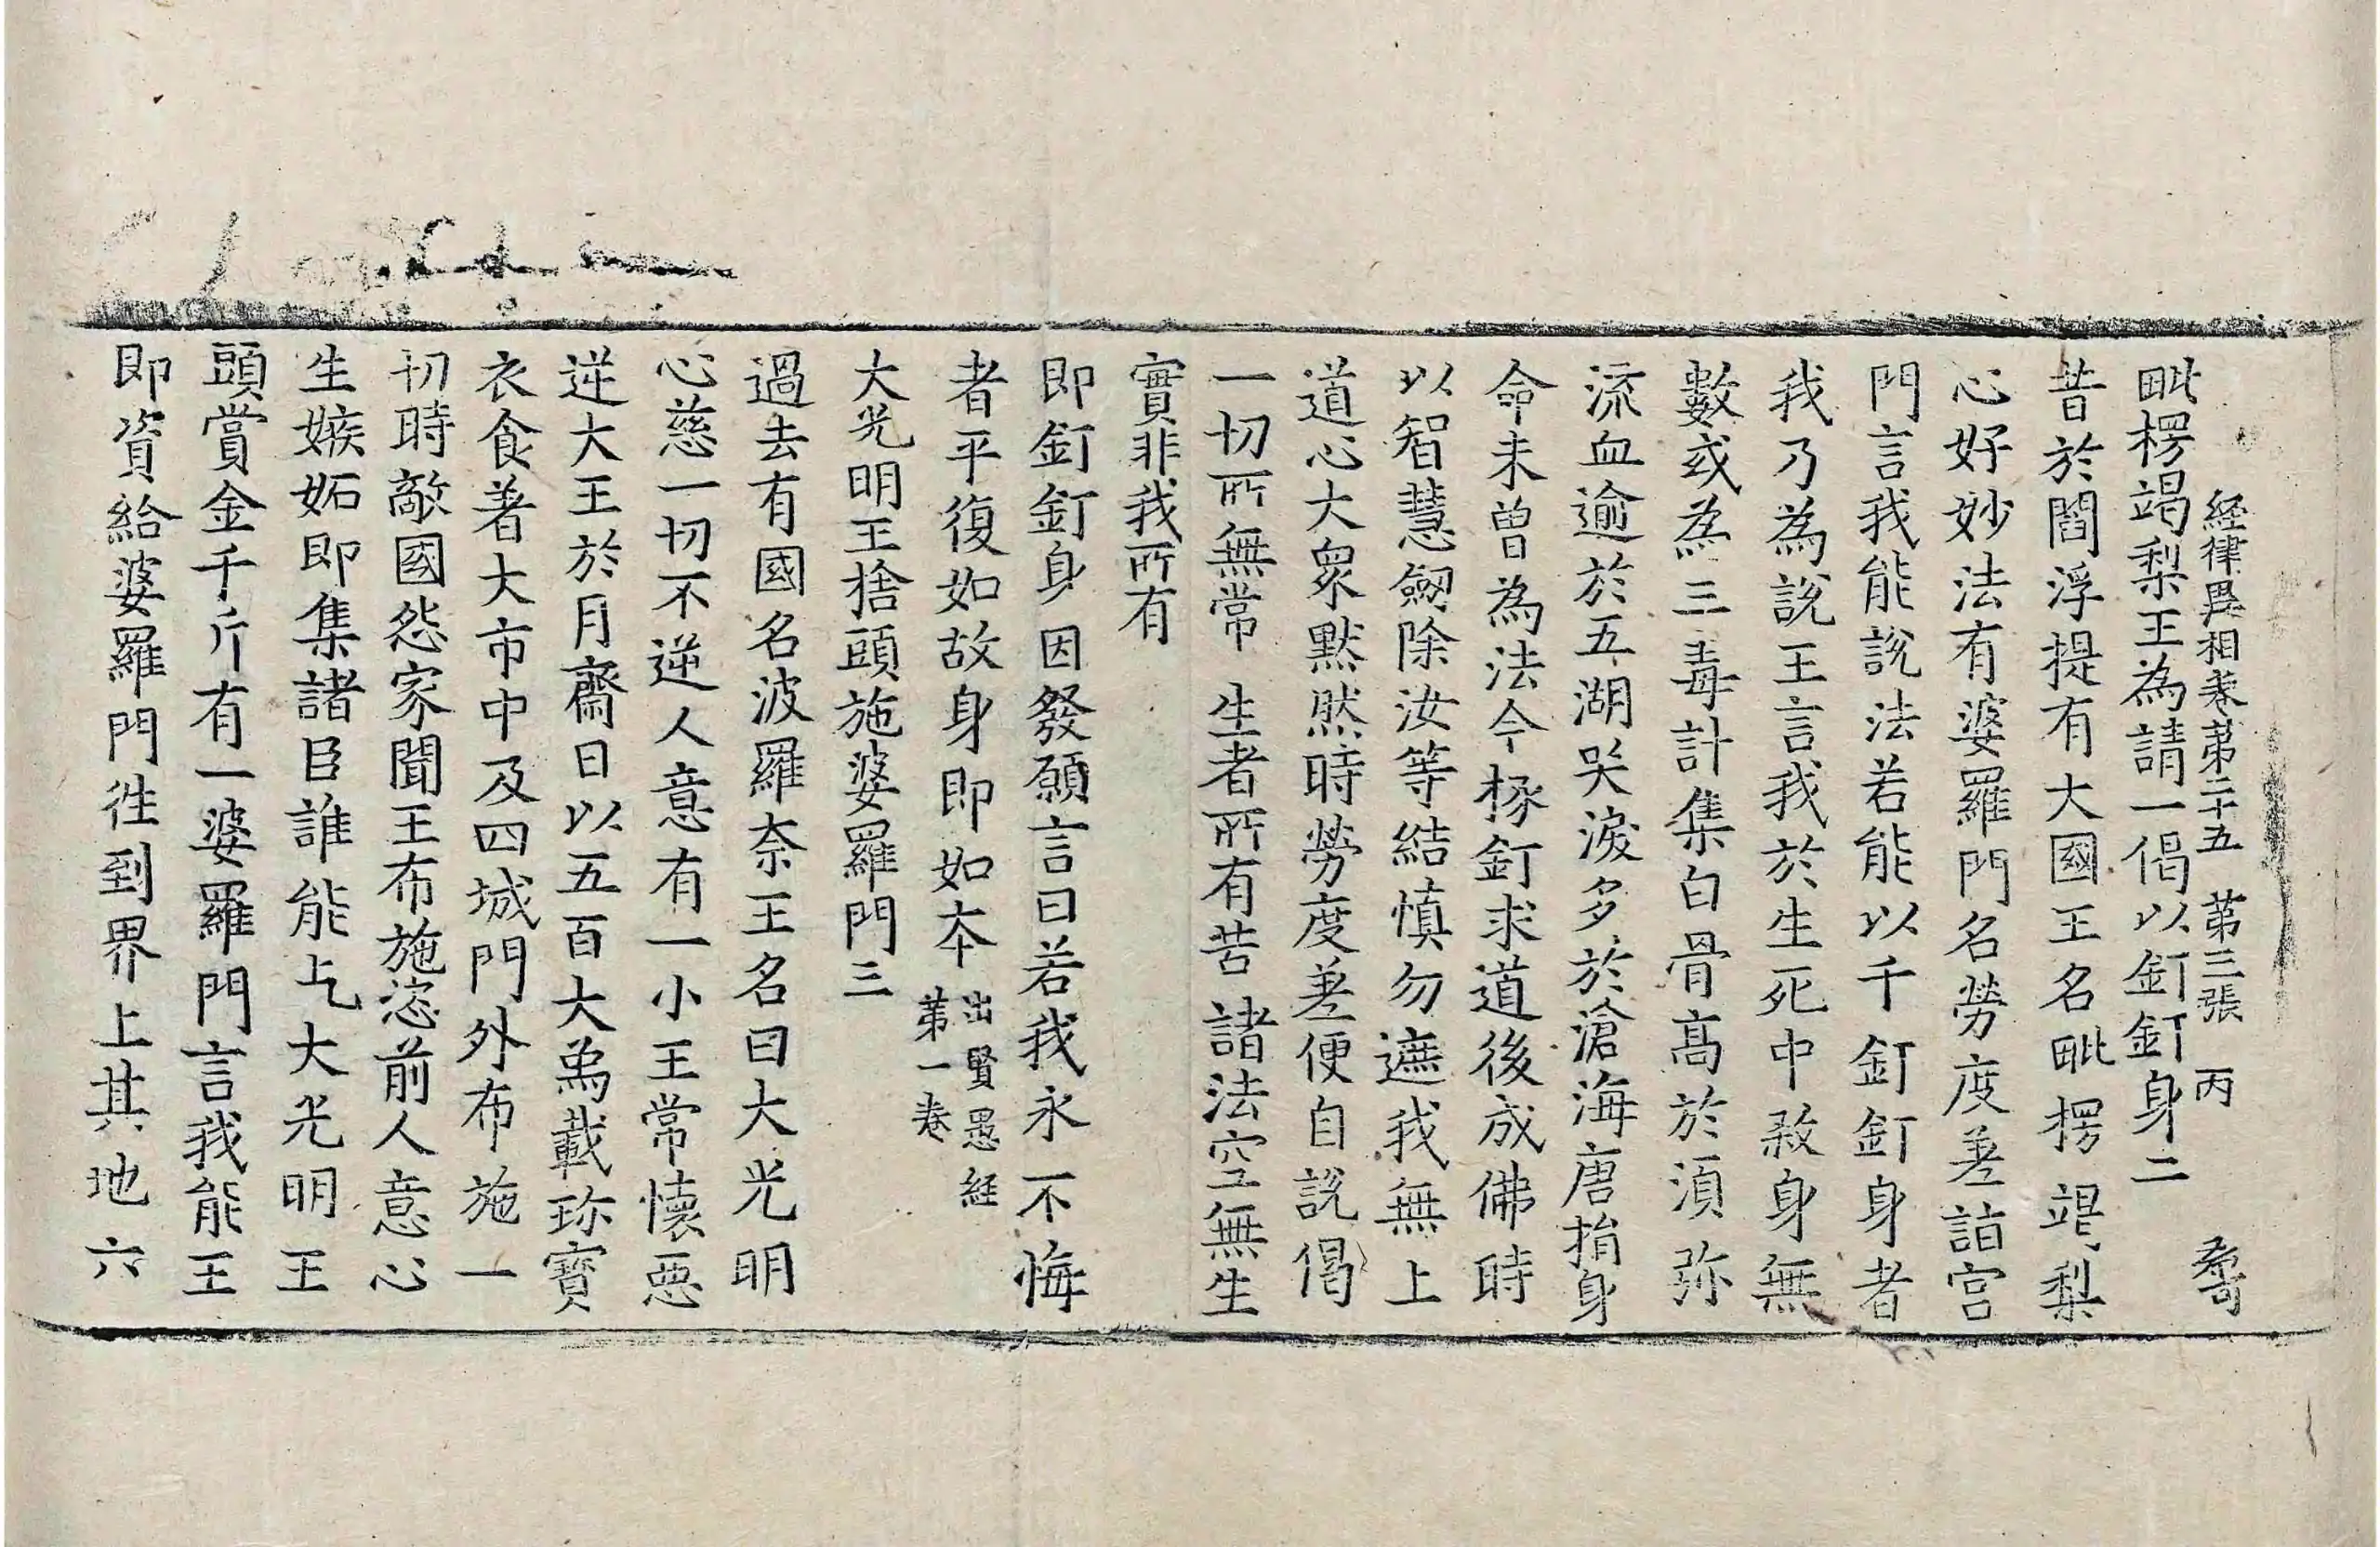 経律異相卷第二十五 第三張 丙
毗楞竭梨王為請一偈以釘釘身二
昔於閻浮提有大國王名毗楞竭梨
心好妙法有婆羅門名勞度差詣宮
門言我能說法若能以千釘釘身者
我乃為說王言我於生死中煞身無
數或為三毒計集白骨髙於湏弥
流血逾於五湖哭淚多於滄海唐捐身
命未曾為法今㧻釘求道後成佛時
以智慧劔除汝等結慎勿遮我無上
道心大衆默然時勞度差便自說偈
一切所無常 生者所有苦 諸法空無生
實非我所有
即釘釘身因發願言曰若我永不悔
者平復如故身即如本 出賢愚経
第一卷
大光明王捨頭施婆羅門三
過去有國名波羅奈王名曰大光明
心慈一切不逆人意有一小王常懷惡
逆大王於月齋日以五百大爲載珎寶
衣食著大市中及四城門外布施一
切時敵國怨家聞王布施恣前人意心
生嫉妬即集諸臣誰能乞大光明王
頭賞金千斤有一婆羅門言我能王
即資給婆羅門徃到界上其地六